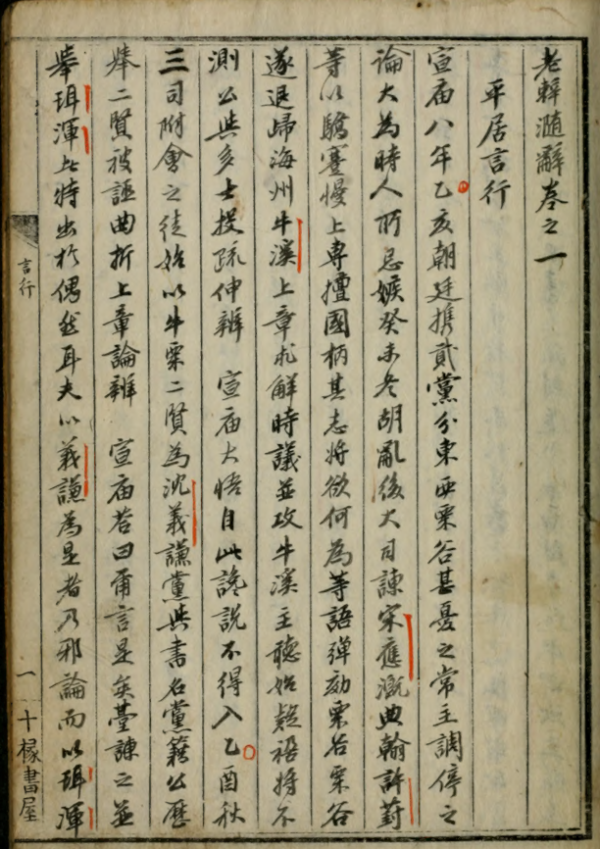 老韓隨辭卷之一
平居言行
宣庙八年乙亥朝廷携貳黨分東西栗谷甚憂之常主調停之
論大為時人所忌嫉癸未冬胡亂後大司諫宋應漑典翰許葑
等以驕蹇慢上專擅國柄其志將欲何為等語彈劾栗谷栗谷
遂退歸海州牛溪上章求解時議並攻牛溪主聽始疑禍將不
測公與多士投疏伸辨 宣庙大悟自此讒説不得入乙酉秋
三司附會之徒始以牛栗二賢為沈義謙黨與書名黨籍公歷
擧二賢被誣曲折上章論辨 宣庙答曰爾言是矣臺諫之並
擧珥渾此特出於偶然耳夫以義謙為是者乃邪論而以珥渾
言行
一
十椽書屋